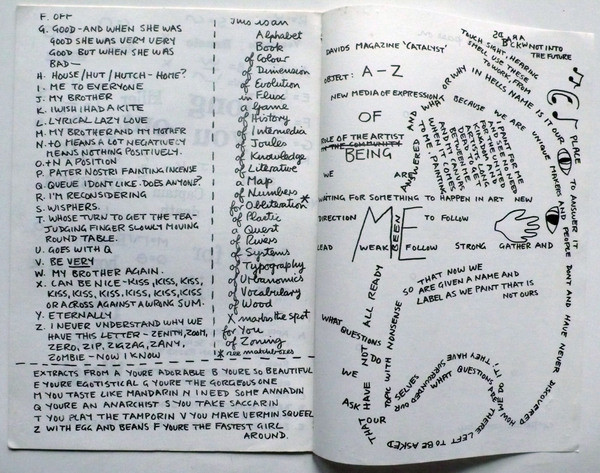 F. OFF
G. GOOD - AND WHEN SHE WAS
GOOD SHE WAS VERY VERY
GOOD BUT WHEN SHE WAS
BAD —
H. HOUSE / HUT / HUTCH - HOME?
I. ME TO EVERYONE
J. MY BROTHER
K. I WISH I HAD A KITE
L. LYRICAL LAZY LOVE
M. MY BROTHER AND MY MOTHER
N. +O MEANS A LOT NEGATIVELY
MEANS NOTHING POSITIVELY.
O. +N A POSITION
P. PATER NOSTRI FAINTING INCENSE
Q. QUEUE I DONT LIKE. DOES ANYONE?
R. I'M RECONSIDERING
S. WISPHERS.
T. WHOSE TURN TO GET THE TEA-
JUDGING FINGER SLOWLY MOVING
ROUND TABLE.
U. GOES WITH Q
V. BE VERY
W. MY BROTHER AGAIN.
X. CAN BE NICE - KISS, KISS, KISS,
KISS, KISS, KISS, KISS, KISS, KISS
OR ACROSS AGAINST A WRONG SUM.
Y. ETERNALLY
Z. I NEVER UNDERSTAND WHY WE
HAVE THIS LETTER - ZENITH, ZOOM,
ZERO, ZIP, ZIGZAG, ZANY,
ZOMBIE - NOW I KNOW
This is an
Alphabet
Book
of Colour
of Dimension
of Evolution
in Flux
a Game
of History
of Intermedia
of Joules
of Knowledge
of Literative
a Map
of Numbers
for Obliteration*
of Plastic
a Quest
of Rivers
of Systems
of Typography
of Urbanomics
of Vocabulary
of Wood
X marks the spot
for You
of Zoning
* see matchboxes
EXTRACTS FROM A YOURE ADORABLE B YOURE SO BEAUTIFUL
E YOURE EGOTISTICAL G YOURE THE GORGEOUS ONE
M YOU TASTE LIKE MANDARIN N I NEED SOME ANNADIN
Q YOURE AN ANARCHIST S YOU TAKE SACCARIN
T YOU PLAY THE TAMPORIN V YOU MAKE VERMIN SQUEEL
Z WITH EGG AND BEANS F YOURE THE FASTEST GIRL
AROUND.
DAVIDS MAGAZINE 'CATALYST'
OBJECT: A - Z
NEW MEDIA OF EXPRESSION
OF
ROLE OF THE ARTIST
IN THE COMMUNITY
BEING
WE ARE
WAITING FOR SOMETHING TO HAPPEN IN ART NEW
DIRECTION ME TO FOLLOW
LEAD WEAK BEEN FOLLOW STRONG GATHER AND
TOUCH SIGHT, HEARING
SMELL USE THESE
TO WORK, FROM
NOT INTO
THE FUTURE
ANSWERED AND WHAT OR WHY IN HELLS NAME IS YOUR
BECAUSE WE ARE UNIQUE MAKERS
PLACE TO ANSWER IT
AND PEOPLE DONT AND HAVE NEVER DISCOVERED HOW
THERE LEFT TO BE ASKED
THAT NOW WE
SO ARE GIVEN A NAME AND
LABEL AS WE PAINT THAT IS
NOT OURS
WHAT
QUESTIONS
DO
WE
ASK
THAT HAVE NOT ALL READY
OUR TOPIC WITH NONSENSE
WHAT QUESTIONS